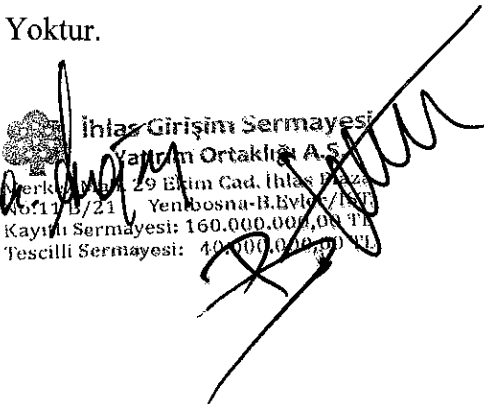 Yoktur.
İhlas Girişim Sermayesi
Yatırım Ortaklığı A.Ş.
Merkez Mah. 29 Ekim Cad. İhlas Plaza
No:11 B/21 Yenibosna-B.Evler/İST.
Kayıtlı Sermayesi: 160.000.000,00 TL
Tescilli Sermayesi: 40.000.000,00 TL